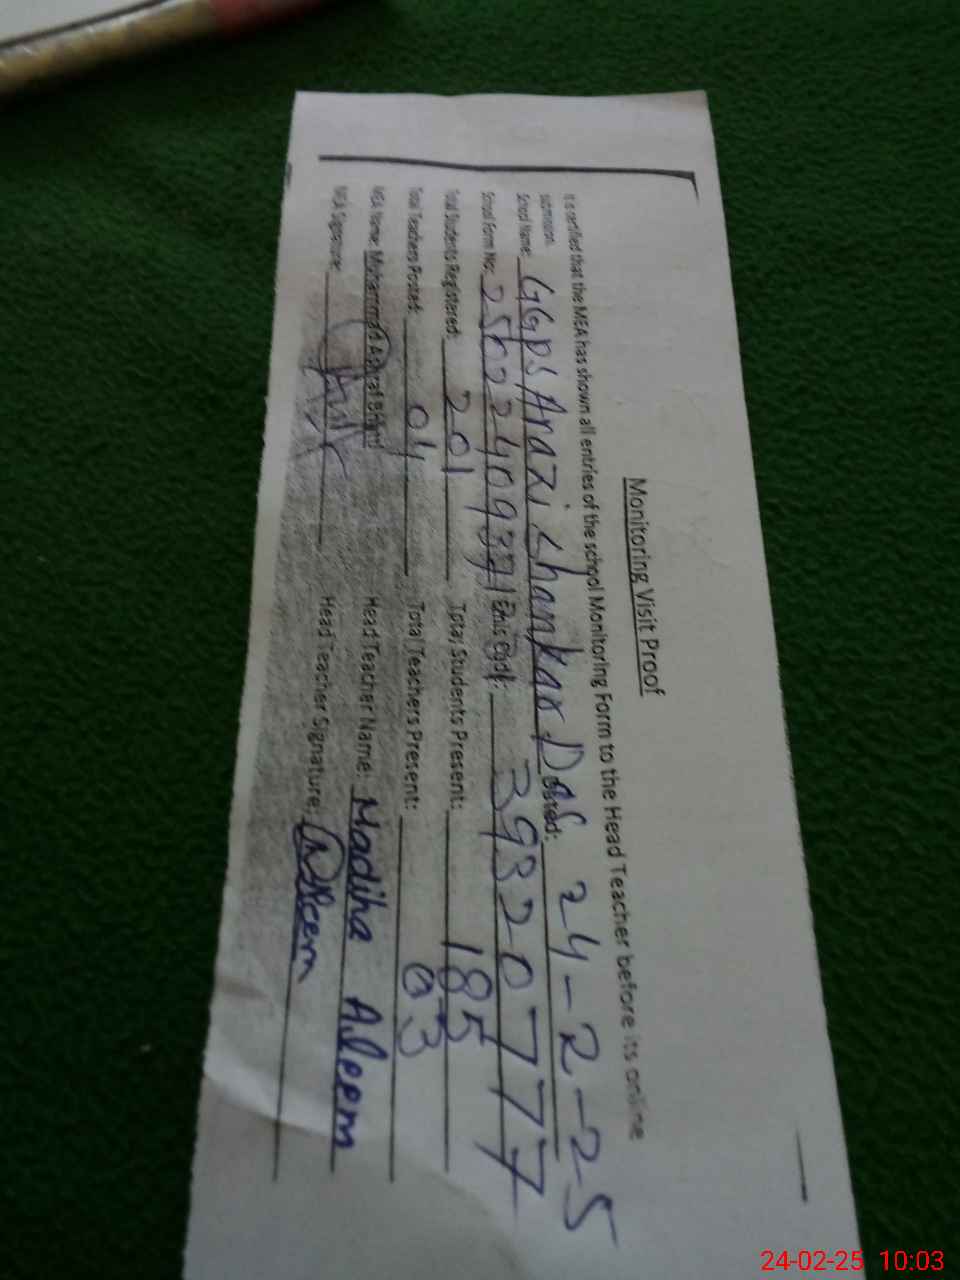 Monitoring Visit Proof
It is certified that the MEA has shown all entries of the school Monitoring Form to the Head Teacher before its online
submission.
School Name: GGPS Arazi Shankar Das Dated: 24-2-25
School Form No: Emis Code: 39320777
Total Students Registered: 201 Total Students Present: 185
Total Teachers Posted: 04 Total Teachers Present: 03
MEA Name: Mohammad Ashraf Head Teacher Name: Madiha Aleem
MEA Signature: Head Teacher Signature: Aleem
24-02-25 10:03